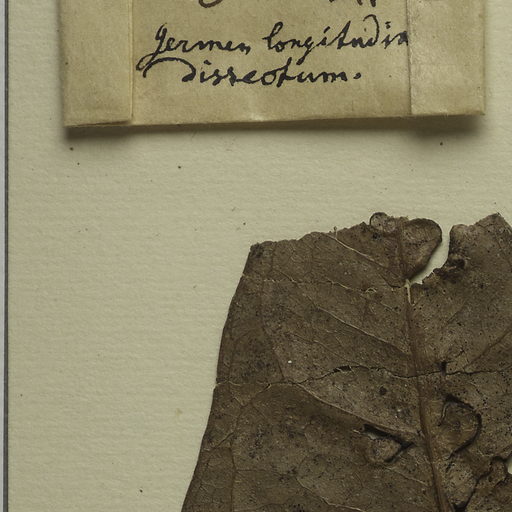 germen longitudin
Dissectum.